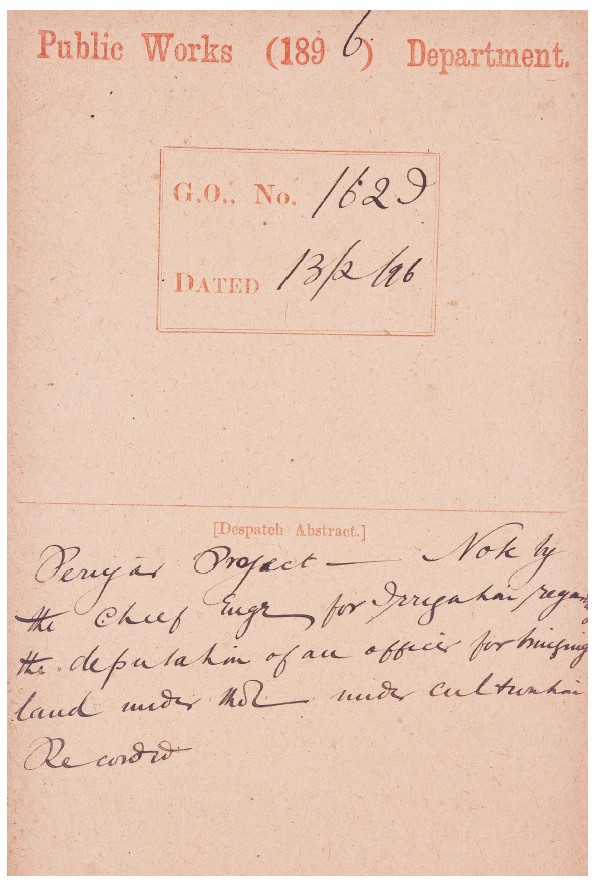 Public Works (1896) Department.
G.O., No. 162 I
DATED 13/2/96
[Despatch Abstract.]
Periyar Project — Note by
the Chief Engr for Irrigation regarding
the deputation of an officer for bringing
land under under cultivation
Recorded